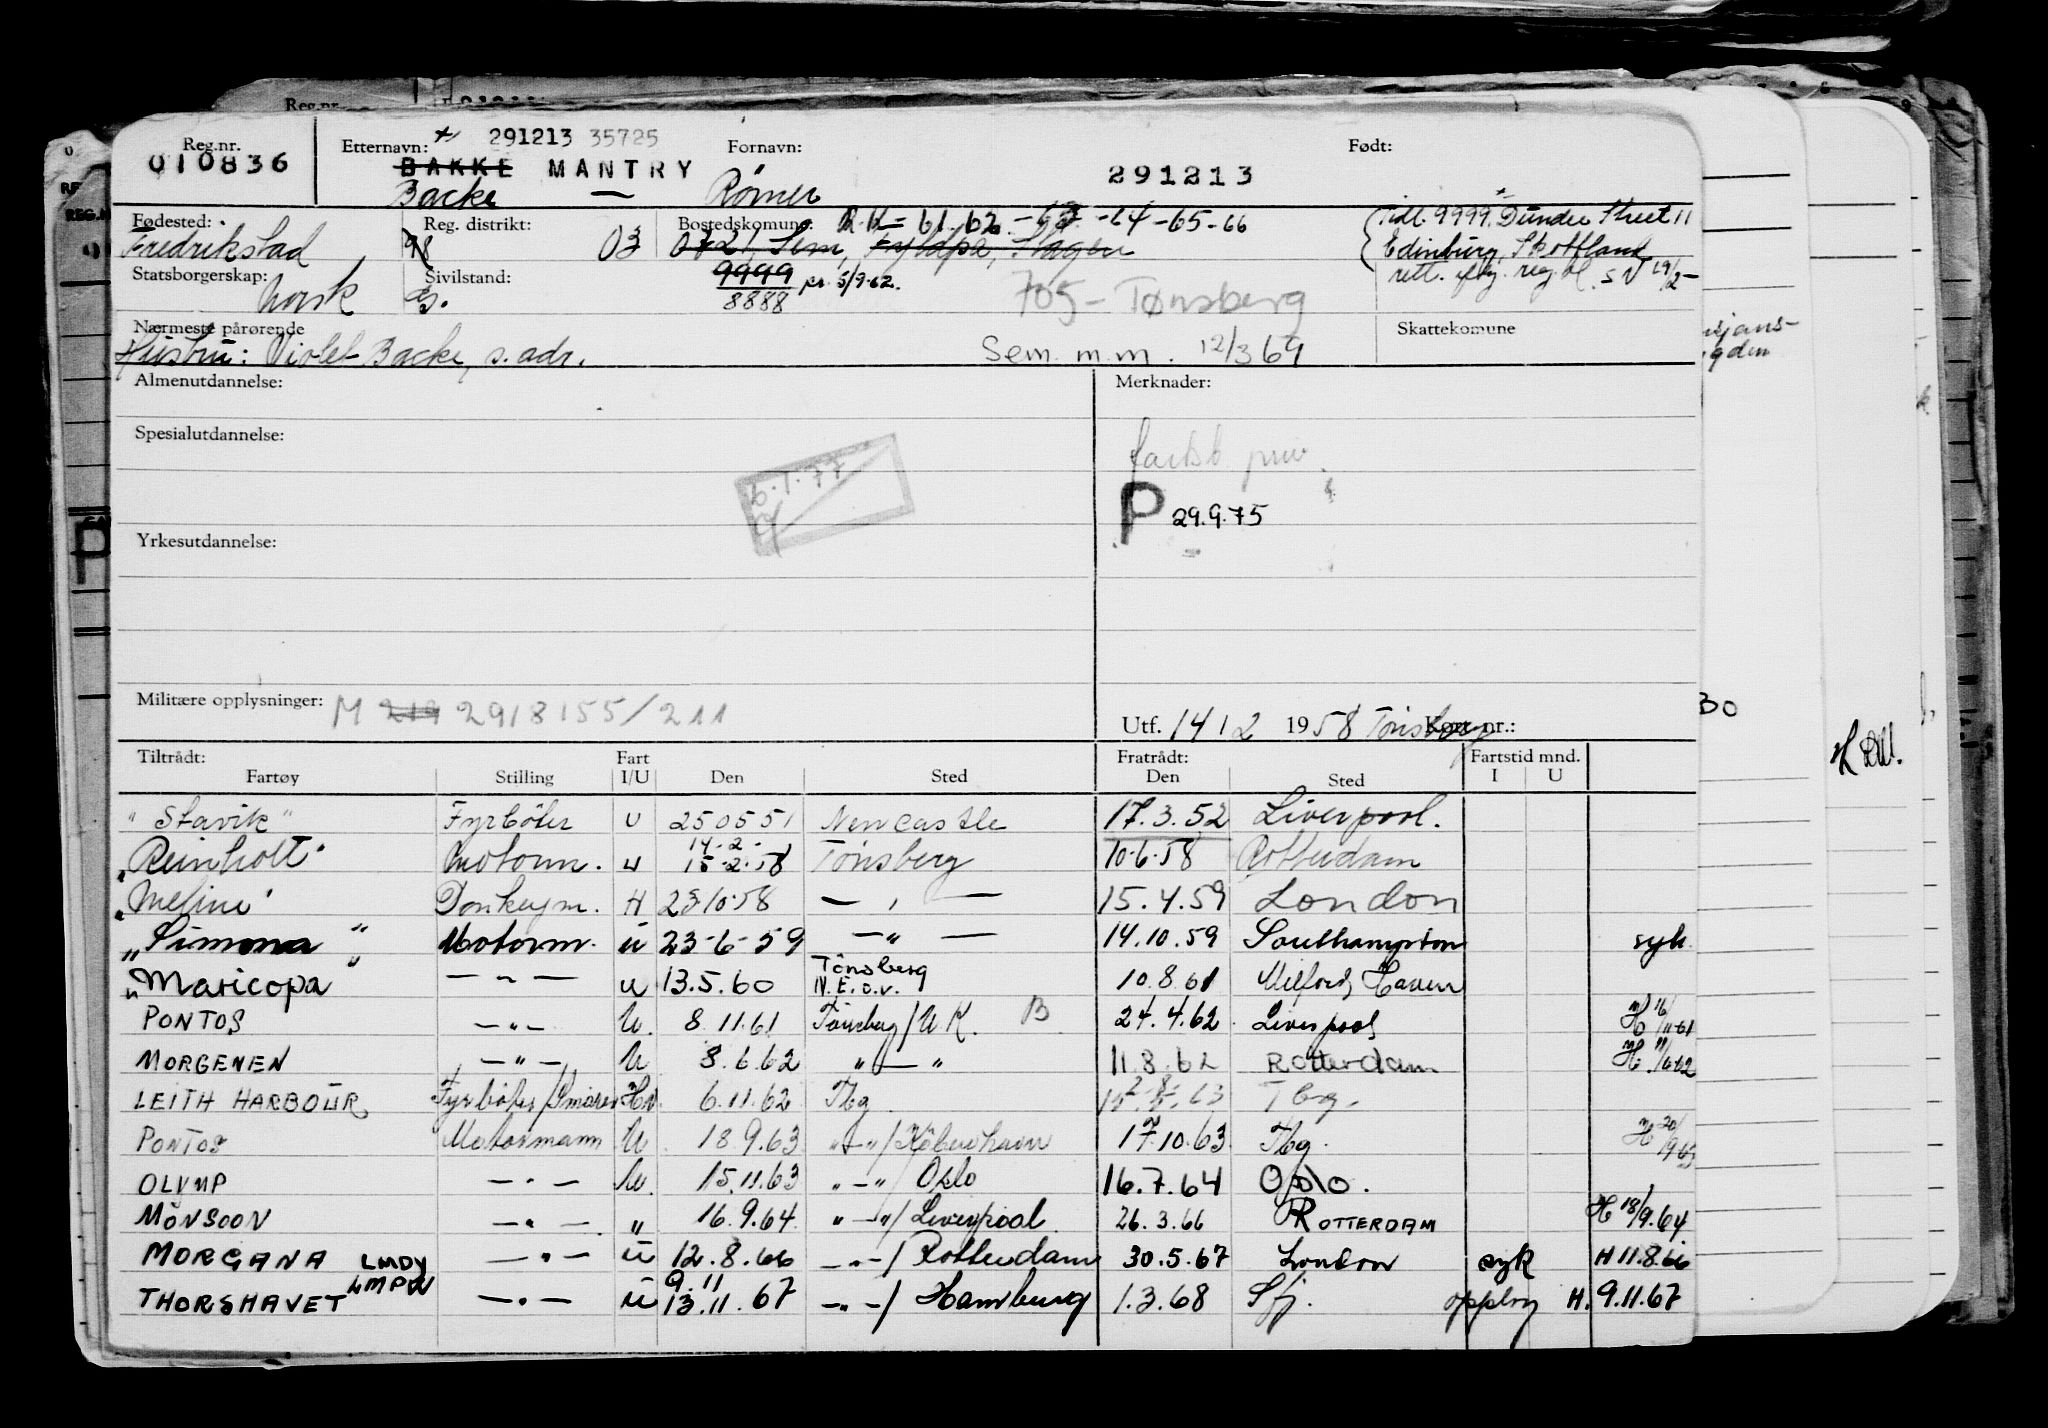 Reg.nr. Etternavn: 291213 35725 Fornavn: Født:
010836 BAKKE MANTRY 291213
Backe — Rømer
Fødested: Reg. distrikt: Bostedskomune: R.K = 61.62.-63-64-65-66 Tidl. 9999. Dundee Street 11
Fredrikstad 03 0721 Sem, Slagen Edinburg, Skottland
Statsborgerskap: Sivilstand: 9999 5/9-62.
Norsk G. 8888 705-Tønsberg
Nærmeste pårørende Skattekomune
Hustru: Violet Backe, s. adr. Sem m.m. 12/3 69
Almenutdannelse: Merknader:
Spesialutdannelse:
6.1.77
P 29.9.75
Yrkesutdannelse:
Militære opplysninger: M 219 2918155/211
Utf. 14 12 1958 Tønsberg nr.:
Tiltrådt: Fart Fratrådt: Fartstid mnd.
Fartøy Stilling I/U Den Sted Den Sted I U
"Stavik" Fyrbøter U 250551 Newcastle 17.3.52 Liverpool.
14-2-
"Reinholt" Motorm. U 15-2-58 Tønsberg 10-6-58 Rotterdam
"Meline" Donkeym. H 23-10-58 — " — 15.4.59 London
"Simona" Motorm. U 23-6-59 — " — 14.10.59 Southampton syk
"Maricopa" — " — U 13.5.60 Tønsberg N.E.O.V. 10.8.61 Milford Haven
PONTOS — " — U. 8 11.61 Tønsberg/U.K. B 24.4.62 Liverpool
MORGENEN — " — U 8.6.62 " — " 11.8.62 ROTTERDAM
LEITH HARBOUR Fyrbøter/Smører 6.11.62 Tbg Tbg.
PONTOS Motormann U 18 9.63 " — "/København 17.10.63 Tbg.
OLYMP — " — U. 15.11.63 " — "/Oslo 16.7.64 Oslo.
MONSOON — " — " 16.9.64. " — "/Liverpool 26.3.66 ROTTERDAM H 18/9.64
MORGANA LMDY — " — U 12.8.66 — " —/Rotterdam 30.5.67 London syk H 11.8.66
9.11
THORSHAVET LMPW — " — U 13.11.67 — " —/Hamburg 1.3.68 Sfj. oppbrg H. 9.11.67